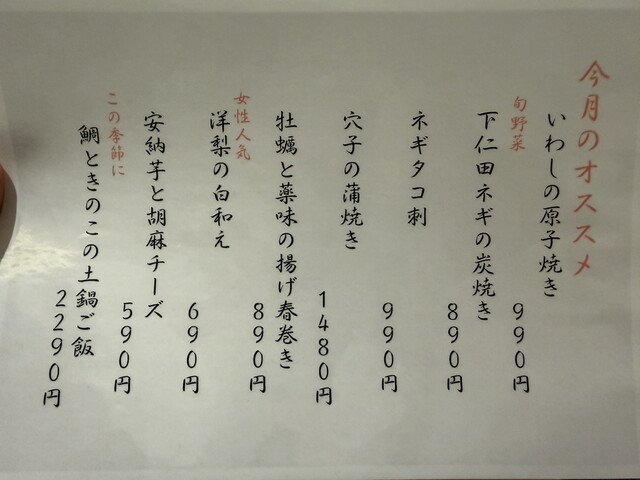 今月のオススメ
いわしの原子焼き
990円
旬野菜
下仁田ネギの炭焼き
890円
ネギタコ刺
990円
穴子の蒲焼き
1480円
牡蠣と薬味の揚げ春巻き
890円
女性人気
洋梨の白和え
690円
安納芋と胡麻チーズ
590円
この季節に
鯛ときのこの土鍋ご飯
2290円